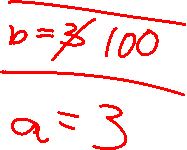 b = 100
a = 3